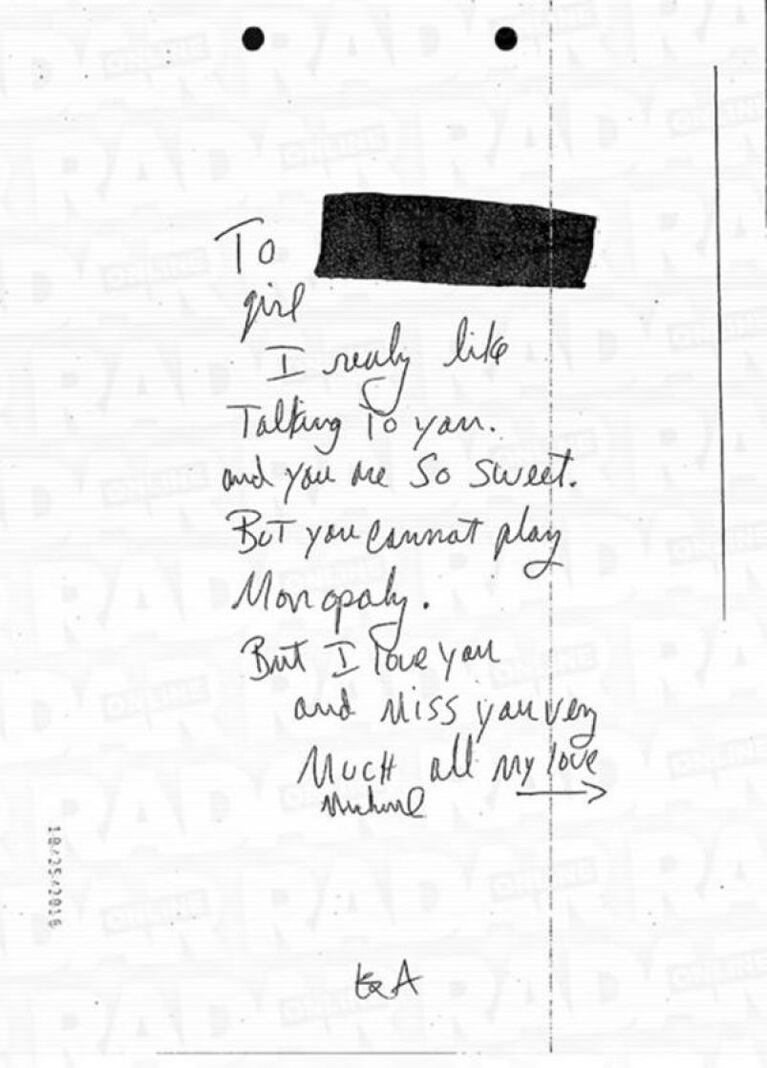 To
girl
I really like
Talking To you.
and you are So Sweet.
But you cannot play
Monopoly.
But I love you
and Miss you very
Much all my love
Michael
10/25/2016
RADAR ONLINE